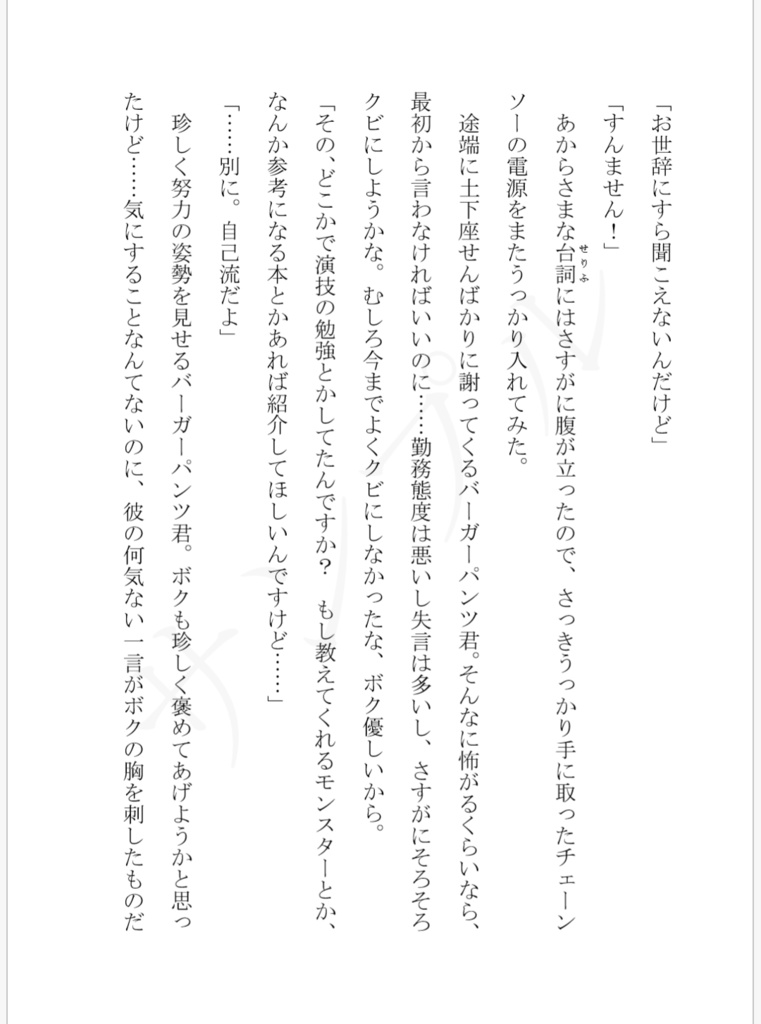 「お世辞にすら聞こえないんだけど」
「すんません！」
　あからさまな台詞にはさすがに腹が立ったので、さっきうっかり手に取ったチェーン
せりふ
ソーの電源をまたうっかり入れてみた。
　途端に土下座せんばかりに謝ってくるバーガーパンツ君。そんなに怖がるくらいなら、
最初から言わなければいいのに……勤務態度は悪いし失言は多いし、さすがにそろそろ
クビにしようかな。むしろ今までよくクビにしなかったな、ボク優しいから。
「その、どこかで演技の勉強とかしてたんですか？　もし教えてくれるモンスターとか、
なんか参考になる本とかあれば紹介してほしいんですけど……」
「……別に。自己流だよ」
　珍しく努力の姿勢を見せるバーガーパンツ君。ボクも珍しく褒めてあげようかと思っ
たけど……気にすることなんてないのに、彼の何気ない一言がボクの胸を刺したものだ
サンプル